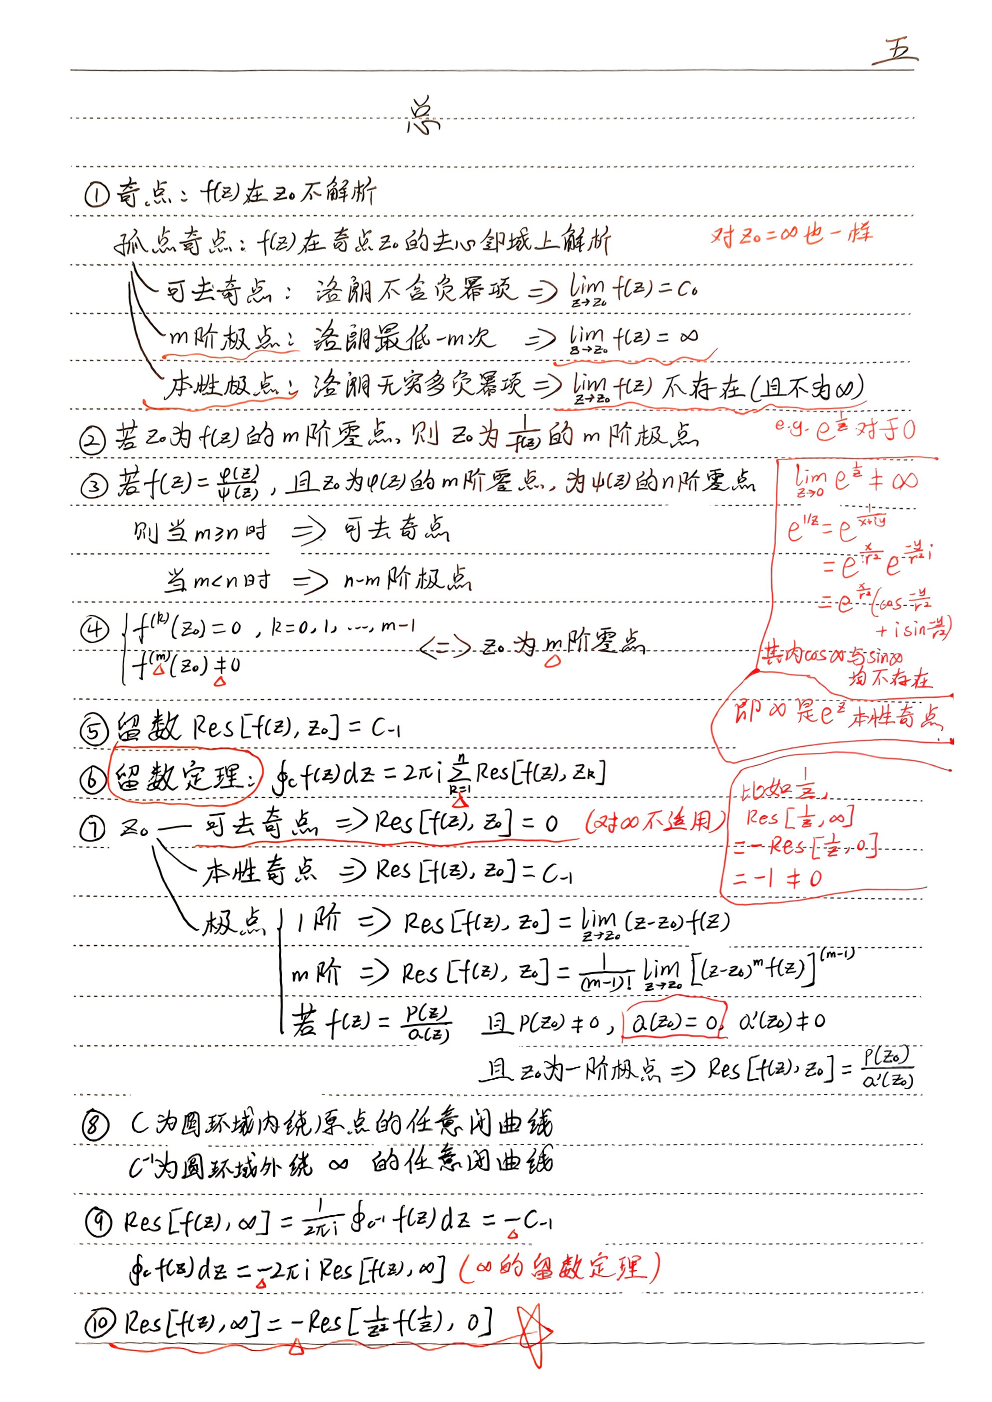 五
总
① 奇点：f(z)在z₀不解析
孤点奇点：f(z)在奇点z₀的去心邻域上解析
对z₀=∞也一样
可去奇点：洛朗不含负幂项 => lim_{z→z₀} f(z)=C₀
m阶极点：洛朗最低-m次 => lim_{z→z₀} f(z)=∞
本性极点：洛朗无穷多负幂项 => lim_{z→z₀} f(z) 不存在(且不为∞)
e.g. e^{1/z} 对于0
② 若z₀为f(z)的m阶零点,则z₀为1/f(z)的m阶极点
③ 若f(z)=φ(z)/ψ(z), 且z₀为φ(z)的m阶零点,为ψ(z)的n阶零点
则当m≥n时 => 可去奇点
当m<n时 => n-m阶极点
lim_{z→0} e^{1/z} ≠ ∞
e^{1/z} = e^{1/(x+iy)}
= e^{x/r²} e^{-y/r² i}
= e^{x/r²}(cos -y/r²
+ i sin -y/r²)
其内cos∞与sin∞
均不存在
即∞是e^z本性奇点
④ { f^{(k)}(z₀)=0, k=0,1,…,m-1
f^{(m)}(z₀)≠0 <=> z₀为m阶零点
⑤ 留数 Res[f(z),z₀]=C₋₁
⑥ 留数定理：∮_C f(z)dz=2πi Σ_{k=1}^{n} Res[f(z),z_k]
⑦ z₀ — 可去奇点 => Res[f(z),z₀]=0 (对∞不适用)
比如1/z,
Res[1/z,∞]
=-Res[1/z,0]
=-1≠0
本性奇点 => Res[f(z),z₀]=C₋₁
极点 { 1阶 => Res[f(z),z₀]=lim_{z→z₀}(z-z₀)f(z)
m阶 => Res[f(z),z₀]=1/(m-1)! lim_{z→z₀}[(z-z₀)^m f(z)]^{(m-1)}
若f(z)=P(z)/Q(z) 且P(z₀)≠0, Q(z₀)=0, Q'(z₀)≠0
且z₀为一阶极点 => Res[f(z),z₀]=P(z₀)/Q'(z₀)
⑧ C为圆环域内绕原点的任意闭曲线
C⁻¹为圆环域外绕 ∞ 的任意闭曲线
⑨ Res[f(z),∞]=1/(2πi) ∮_{C⁻¹} f(z)dz=-C₋₁
∮_C f(z)dz=-2πi Res[f(z),∞] (∞的留数定理)
⑩ Res[f(z),∞]=-Res[1/z² f(1/z), 0]